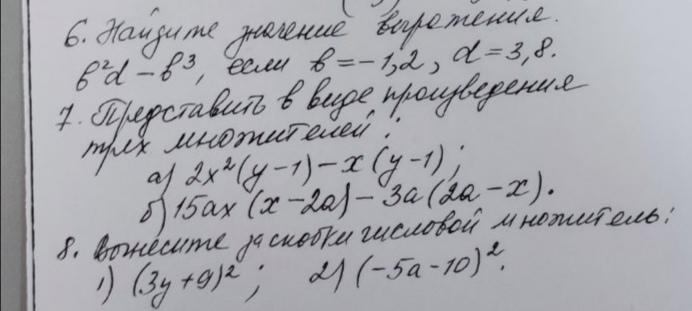 6. Найдите значение выражения.
в²d – в³, если в = –1,2, d = 3,8.
7. Представить в виде произведения
трех множителей:
а) 2x²(y–1) – x(y–1);
б) 15ax(x–2a) – 3a(2a–x).
8. Вынесите за скобки числовой множитель:
1) (3y+9)²; 2) (–5a–10)².